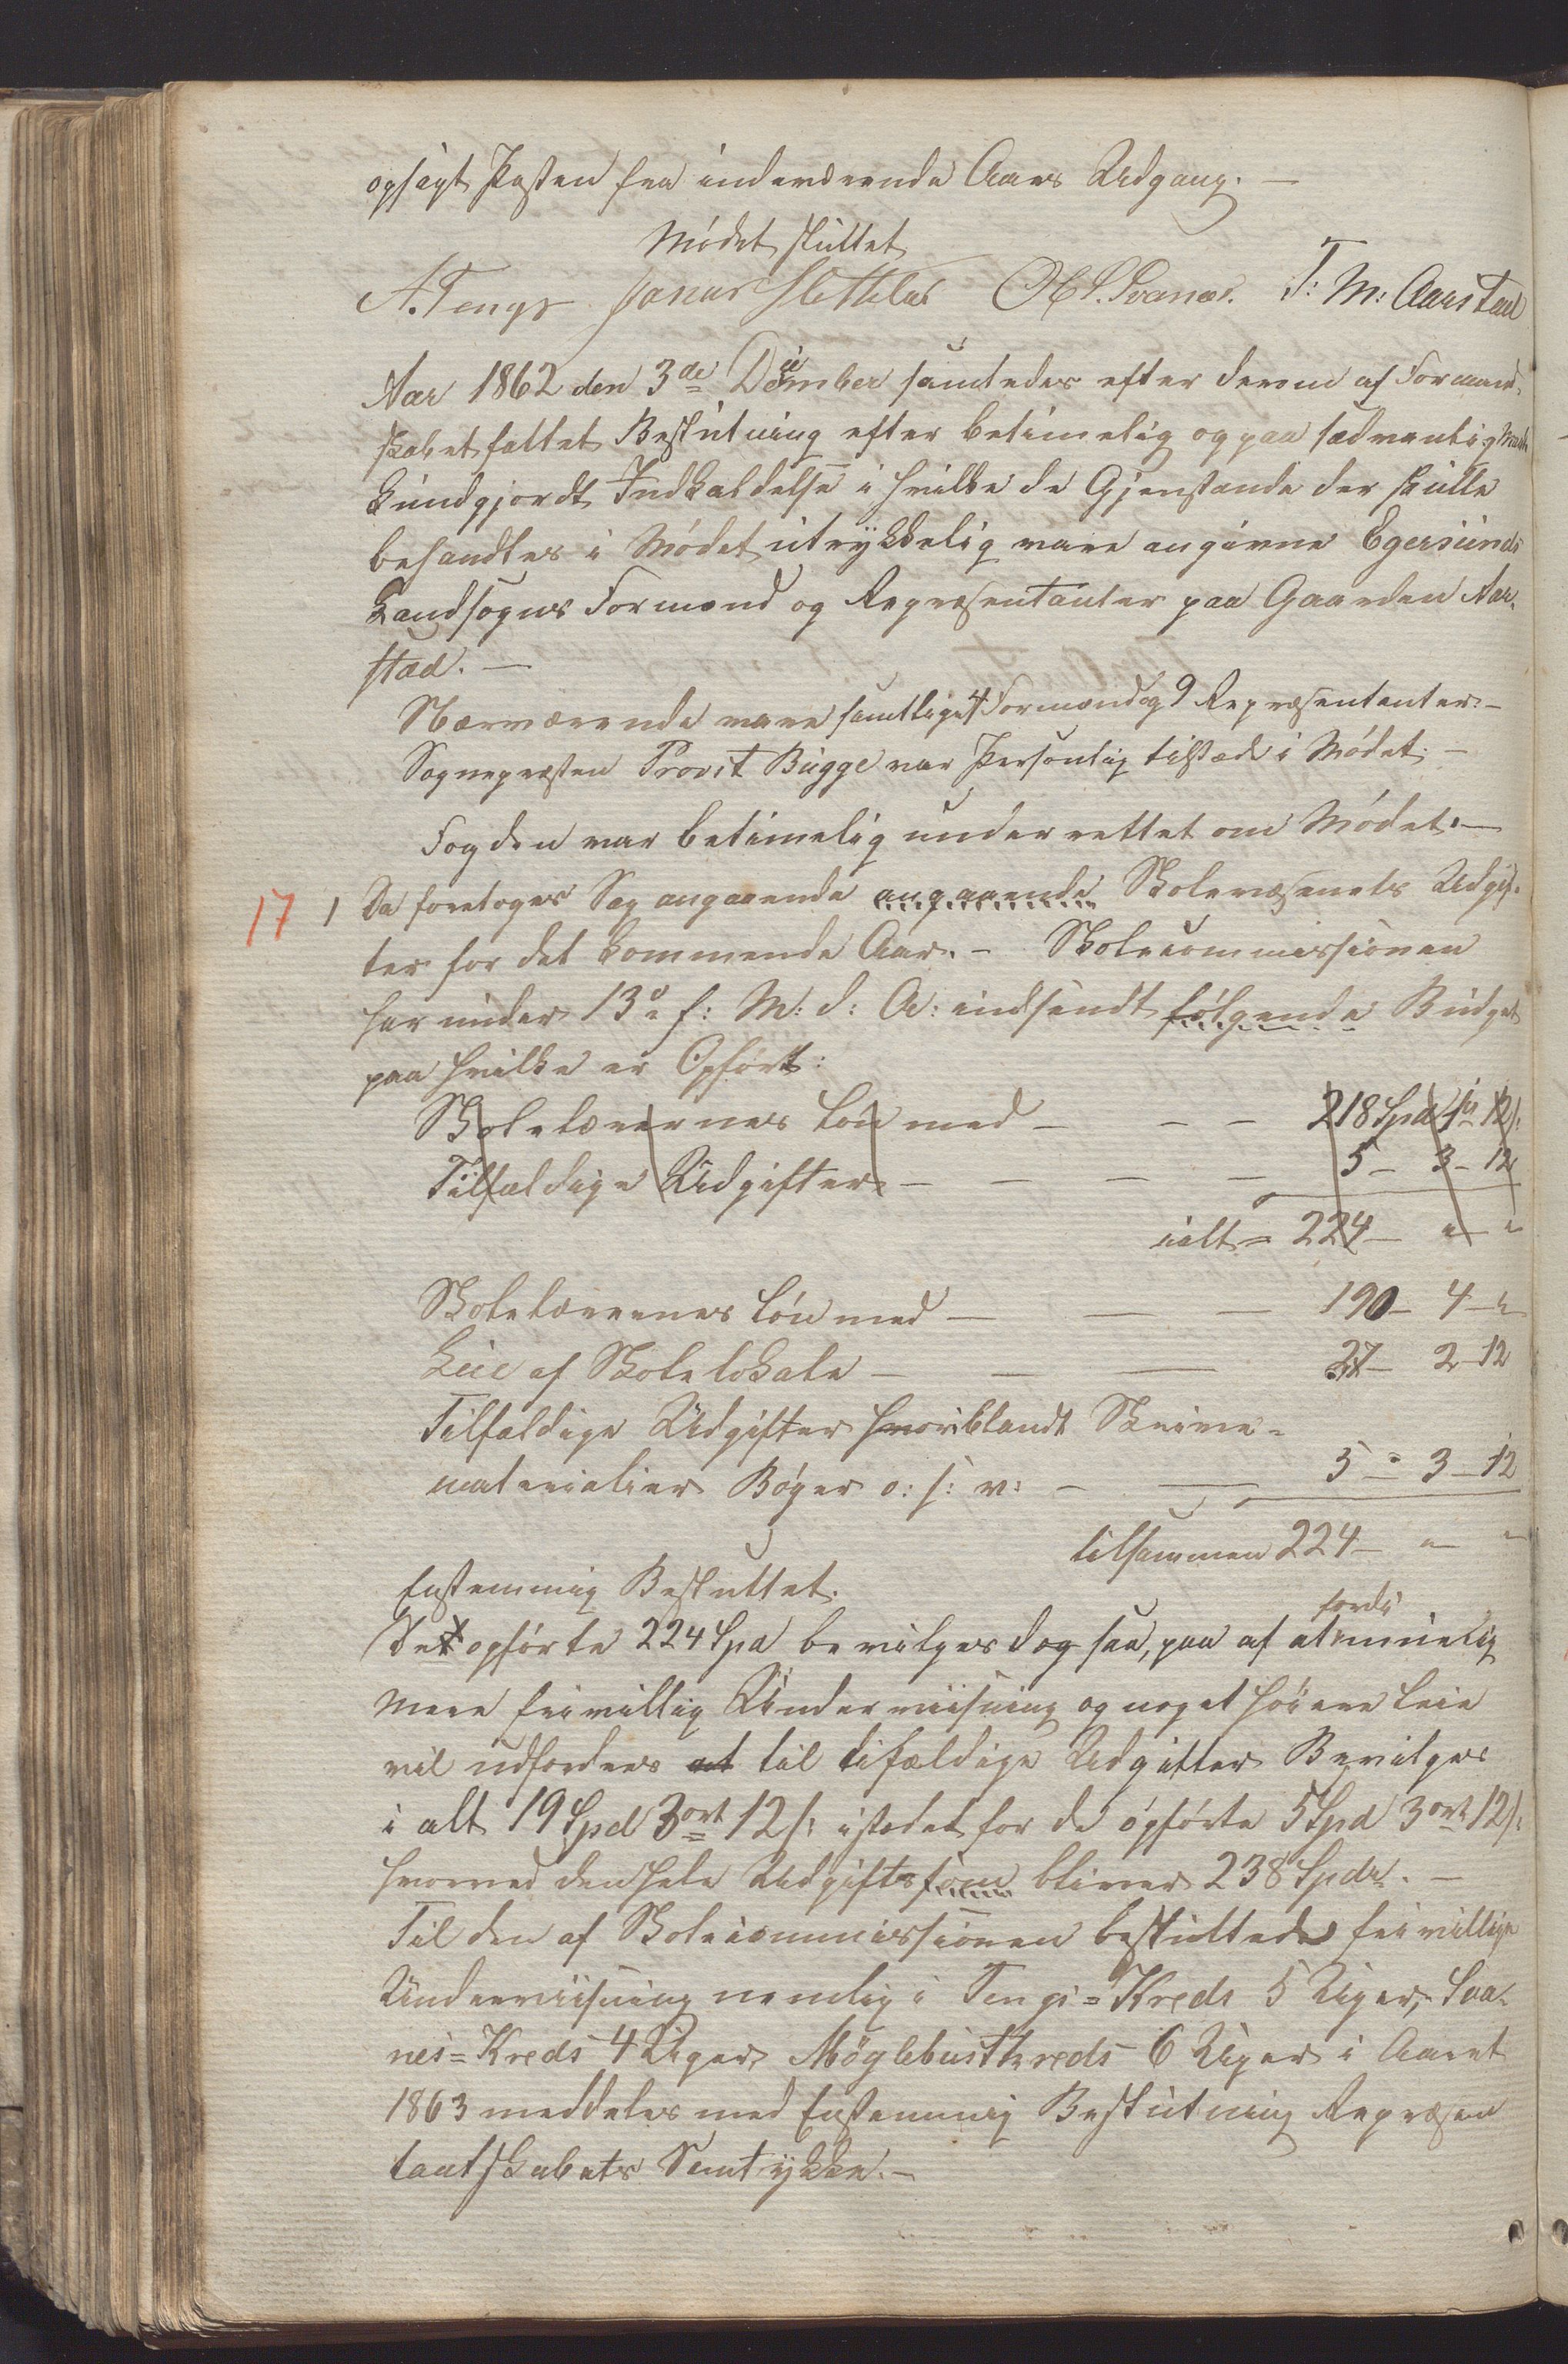 opsagt Posten fra indeværende Aars Udgang. —
Mødet sluttet
A. Tengs Jonas Slettebø Ol. S. Svanæs. T: M: Aarstad
Aar 1862 den 3de December samledes efter derom af Formand-
skabet fattet Beslutning efter betimelig og paa sædvanlig Maade
kundgjordt Indkaldelse i hvilke de Gjenstande der skulle
behandles i Mødet utrykkelig vare angivne Egersunds
Landsogns Formænd og Repræsentanter paa Gaarden Aar-
stad. —
Nærværende vare samtlige 4 Formænd og 9 Repræsentanter. —
Sognepresten Provst Bugge var Personlig tilstæde i Mødet. —
Fogden var betimelig underrettet om Mødet. —
17 1 Da foretoges Sag angaaende angaaende Skolevæsenets Udgif-
ter for det kommende Aar. — Skolecommissionen
har under 13de f: M: d: A: indsendt følgende Budget
paa hvilke er Opført:
Skolelærernes Løn med — — — 218 Spd 1 ort 12 s:
Tilfældige Udgifter — — — — 5 — 3 — 12
ialt = 224 — " — "
Skolelærernes Løn med — — — 190 — 4 — "
Leie af Skolelokale — — — 27 — 2 — 12
Tilfældige Udgifter hvoriblandt Skrive=
materialier Bøger o: s: v: — — 5 — 3 — 12
tilsammen 224 — " — "
Enstemmig Besluttet.
De opførte 224 Spd bevilges dog saa, paa af at fordi muelig
mere frivillig Underviisning og noget høiere Leie
vil udfordres at til tifældige Udgitter Bevilges
i alt 19 Spd 3 ort 12 s: istedet for de opførte 5 Spd 3 ort 12 s:
hvorved den hele Udgiftssum bliver 238 Spdr. —
Til den af Skolecommissionen besluttede frivillige
Underviisning nemlig i Tengs=Kreds 5 Uger, Saa-
nes=Kreds 4 Uger, Møglebustkreds 6 Uger i Aaret
1863 meddeles med Enstemmig Beslutning Repræsen
tantskabets Samtykke. —